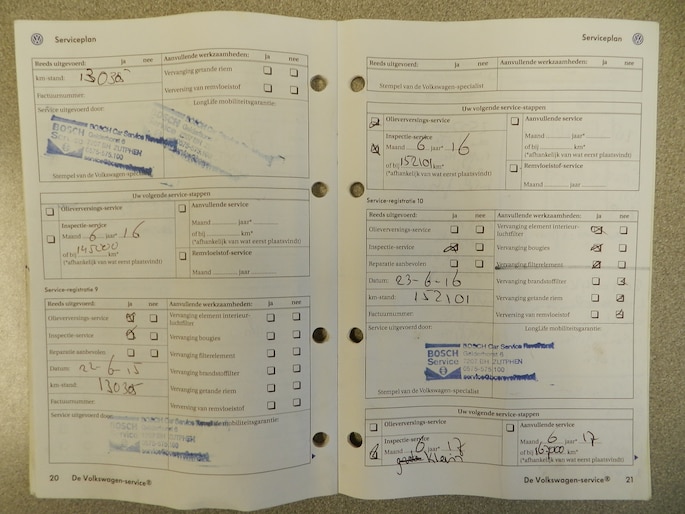 Serviceplan
Reeds uitgevoerd: ja nee Aanvullende werkzaamheden: Ja nee
km-stand:
Vervanging getande riem
Factuurnummer:
Verversing van remvloeistof
Service uitgevoerd door: LongLife mobiliteitsgarantie:
BOSCH Car Service
Gelderhorst 6
BOSCH
Service
ZUTPHEN
0575-575100
Stempel van de Volkswagen-specialist
Uw volgende service-stappen
Olieverversings-service
Aanvullende service
Inspectie-service
Maand 6 jaar* 16
Maand jaar*
of bij 145000 km*
of bij km*
(*afhankelijk van wat eerst plaatsvindt)
(*afhankelijk van wat eerst plaatsvindt)
Remvloeistof-service
Maand jaar
Service-registratie 9
Reeds uitgevoerd: ja nee Aanvullende werkzaamheden: Ja nee
Olieverversings-service
Vervanging element interieur-
luchtfilter
Inspectie-service
Vervanging bougies
Reparatie aanbevolen
Vervanging filterelement
Datum: 22-6-15
Vervanging brandstoffilter
km-stand:
Vervanging getande riem
Factuurnummer:
Verversing van remvloeistof
Service uitgevoerd door:
mobiliteitsgarantie:
BOSCH
Service
20 De Volkswagen-service®
Serviceplan
Reeds uitgevoerd: ja nee Aanvullende werkzaamheden: Ja nee
Stempel van de Volkswagen-specialist
Uw volgende service-stappen
Olieverversings-service
Aanvullende service
Inspectie-service
Maand 6 jaar* 16
Maand jaar*
of bij 152101 km*
of bij km*
(*afhankelijk van wat eerst plaatsvindt)
(*afhankelijk van wat eerst plaatsvindt)
Remvloeistof-service
Maand jaar
Service-registratie 10
Reeds uitgevoerd: ja nee Aanvullende werkzaamheden: ja nee
Olieverversings-service
Vervanging element interieur-
luchtfilter
Inspectie-service
Vervanging bougies
Reparatie aanbevolen
Vervanging filterelement
Datum: 23-6-16
Vervanging brandstoffilter
km-stand: 152101
Vervanging getande riem
Factuurnummer:
Verversing van remvloeistof
Service uitgevoerd door: LongLife mobiliteitsgarantie:
BOSCH Car Service
Gelderhorst 6
BOSCH
Service
ZUTPHEN
0575-575100
Stempel van de Volkswagen-specialist
Uw volgende service-stappen
Olieverversings-service
Aanvullende service
Inspectie-service
Maand 6 jaar* 17
Maand 6 jaar* 17
Klein
of bij 167000 km*
(*afhankelijk van wat eerst plaatsvindt)
De Volkswagen-service® 21